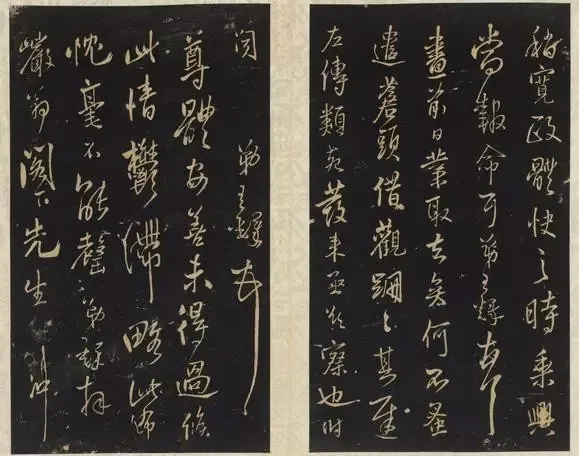 稍寬政體快之時乘興
當報命耳弟王鐸頓首
畫前日業取去矣何不蚤
遣蒼頭借觀翩翩其遲
左傳類苑發來亟欲察也附
閱 弟王鐸頓首
尊體安善未得過候
此情鬱滯略此佈
愧毫不能罄弟鐸拜
巖翁閣下先生